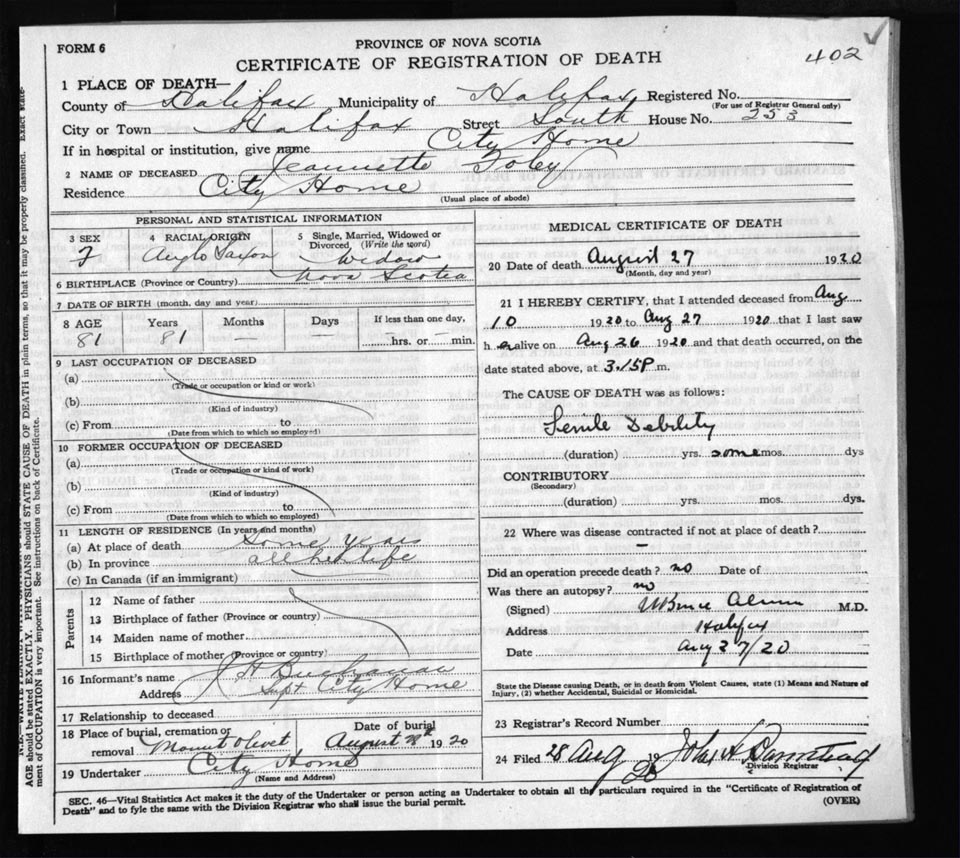 402
FORM 6
PROVINCE OF NOVA SCOTIA
CERTIFICATE OF REGISTRATION OF DEATH
1 PLACE OF DEATH—
County of Halifax Municipality of Halifax Registered No.
(For use of Registrar General only)
City or Town Halifax Street South House No. 253
If in hospital or institution, give name City Home
2 NAME OF DECEASED Jeannette Foley
Residence City Home
(Usual place of abode)
PERSONAL AND STATISTICAL INFORMATION
3 SEX F
4 RACIAL ORIGIN Anglo Saxon
5 Single, Married, Widowed or Divorced (Write the word) Widow
6 BIRTHPLACE (Province or Country) Nova Scotia
7 DATE OF BIRTH (month, day and year)
8 AGE Years Months Days If less than one day,
81 81 — — hrs. or min.
9 LAST OCCUPATION OF DECEASED
(a)
(Trade or occupation or kind or work)
(b)
(Kind of industry)
(c) From to
(Date from which to which so employed)
10 FORMER OCCUPATION OF DECEASED
(a)
(Trade or occupation or kind of work)
(b)
(Kind of industry)
(c) From to
(Date from which to which so employed)
11 LENGTH OF RESIDENCE (In years and months)
(a) At place of death Some years
(b) In province all her life
(c) In Canada (if an immigrant)
Parents
12 Name of father
13 Birthplace of father (Province or country)
14 Maiden name of mother
15 Birthplace of mother (Province or country)
16 Informant's name J H Buchanan
Address Supt City Home
17 Relationship to deceased
18 Place of burial, cremation or removal Mount Olivet
Date of burial August 28th 1920
19 Undertaker City Home
(Name and Address)
MEDICAL CERTIFICATE OF DEATH
20 Date of death August 27 1920
(Month, day and year)
21 I HEREBY CERTIFY, that I attended deceased from Aug
10 1920 to Aug 27 1920 that I last saw
h er alive on Aug 26 1920 and that death occurred, on the
date stated above, at 3.15P m.
The CAUSE OF DEATH was as follows:
Senile Debility
(duration) yrs. some mos. dys
CONTRIBUTORY
(Secondary)
(duration) yrs. mos. dys.
22 Where was disease contracted if not at place of death?
—
Did an operation precede death? no Date of
Was there an autopsy? no
(Signed) M.D.
Address Halifax
Date Aug 27/20
State the Disease causing Death, or in death from Violent Causes, state (1) Means and Nature of
Injury, (2) whether Accidental, Suicidal or Homicidal.
23 Registrar's Record Number
24 Filed 28 Aug 1920 John A
Division Registrar
(OVER)
SEC. 46—Vital Statistics Act makes it the duty of the Undertaker or person acting as Undertaker to obtain all the particulars required in the "Certificate of Registration of
Death" and to fyle the same with the Division Registrar who shall issue the burial permit.
AGE should be stated EXACTLY. PHYSICIANS should STATE CAUSE OF DEATH in plain terms, so that it may be properly classified. Exact state-
ment of OCCUPATION is very important. See instructions on back of Certificate.